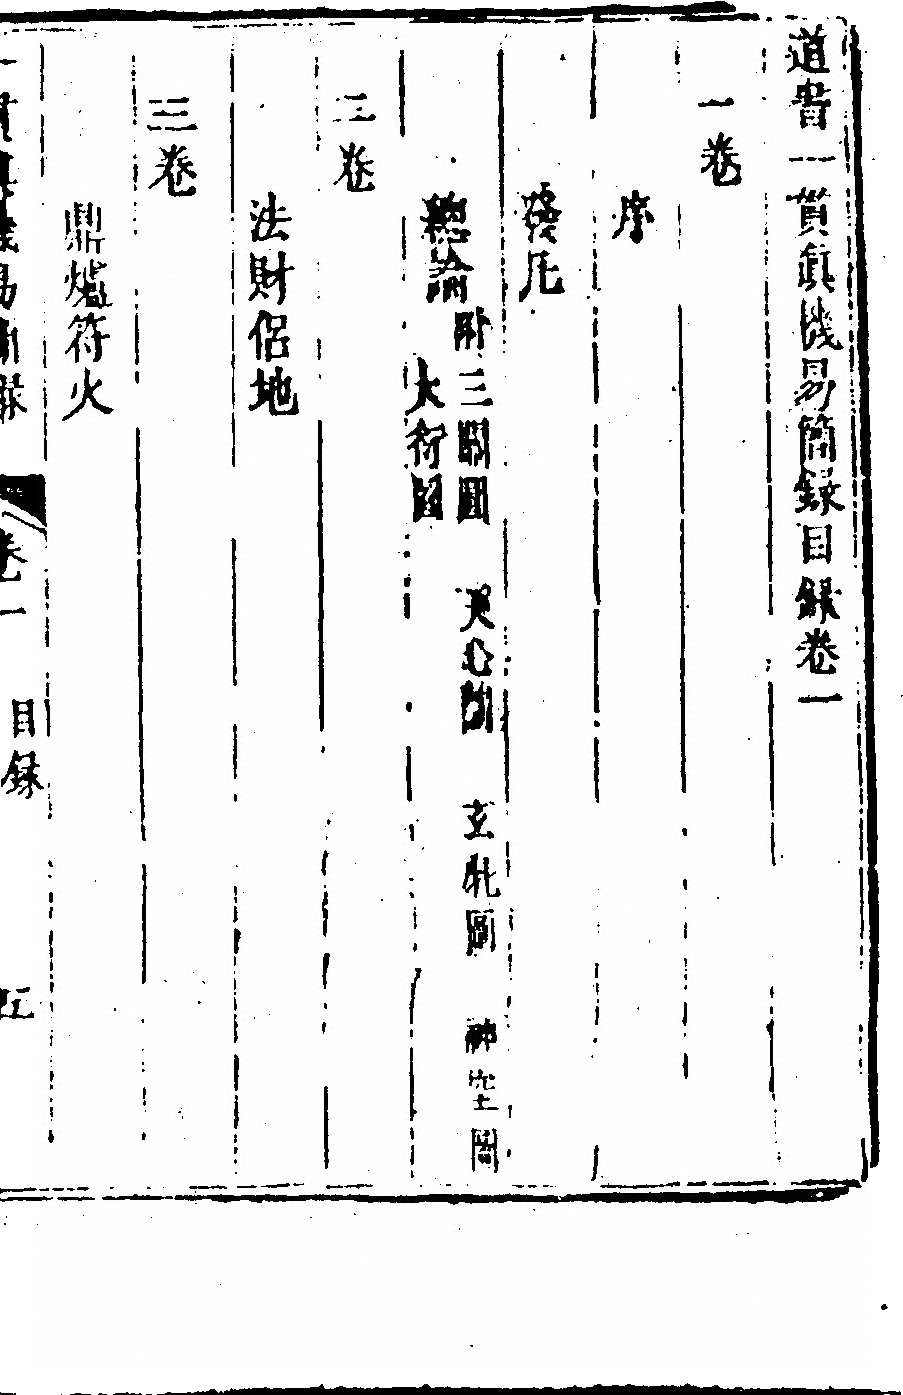 道書一貫眞機易簡録目録卷一
一卷
序
發凡
總論附三關圖 天心圖 玄牝圖 神空圖
大衍圖
二卷
法財侶地
三卷
鼎爐符火
一貫眞機易簡録 卷一 目録 五